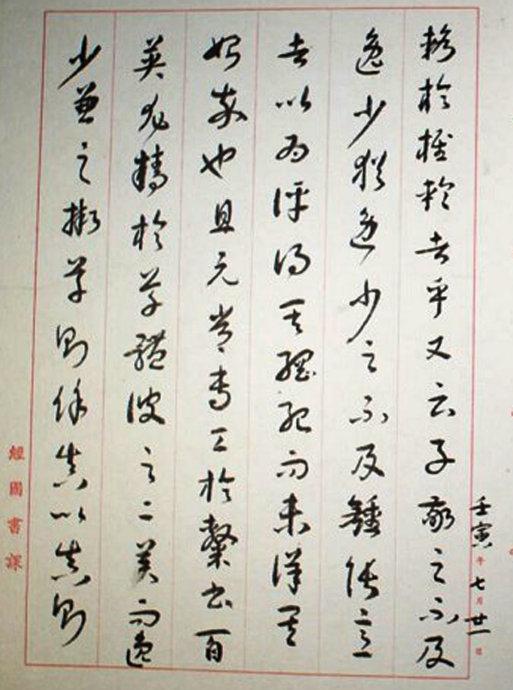 壬寅年七月廿一日
輅於椎輪者乎又云子敬之不及
逸少猶逸少之不及鍾張意
者以為評得其綱紀而未詳其
始卒也且元常專工於隸書百
英尤精於草體彼之二美而逸
少兼之擬草則餘真比真則
經國書課